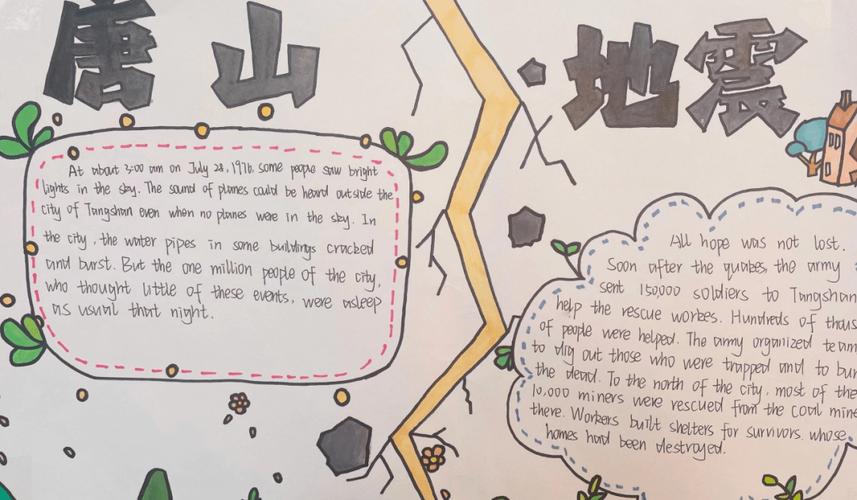 唐山
地震
At about 3:00 am on July 28, 1976, some peope saw bright
lights in the sky. The sound of planes could be heard outside the
city of Tangshan even when no planes were in the sky. In
the city, the water pipes in some buildings cracked
and burst. But the one million people of the city,
who thought little of these events, were asleep
as usual that night.
All hope was not lost.
Soon after the quakes, the army
sent 150000 soldiers to Tangshan
help the rescue workes. Hundreds of thous
of people were helped. The army organized team
to dig out those who were trapped and to bur
the dead. To the north of the city, most of the
10,000 miners were rescued from the coal mine
there. Workers built shelters for survivors whose
homes had been destroyed.